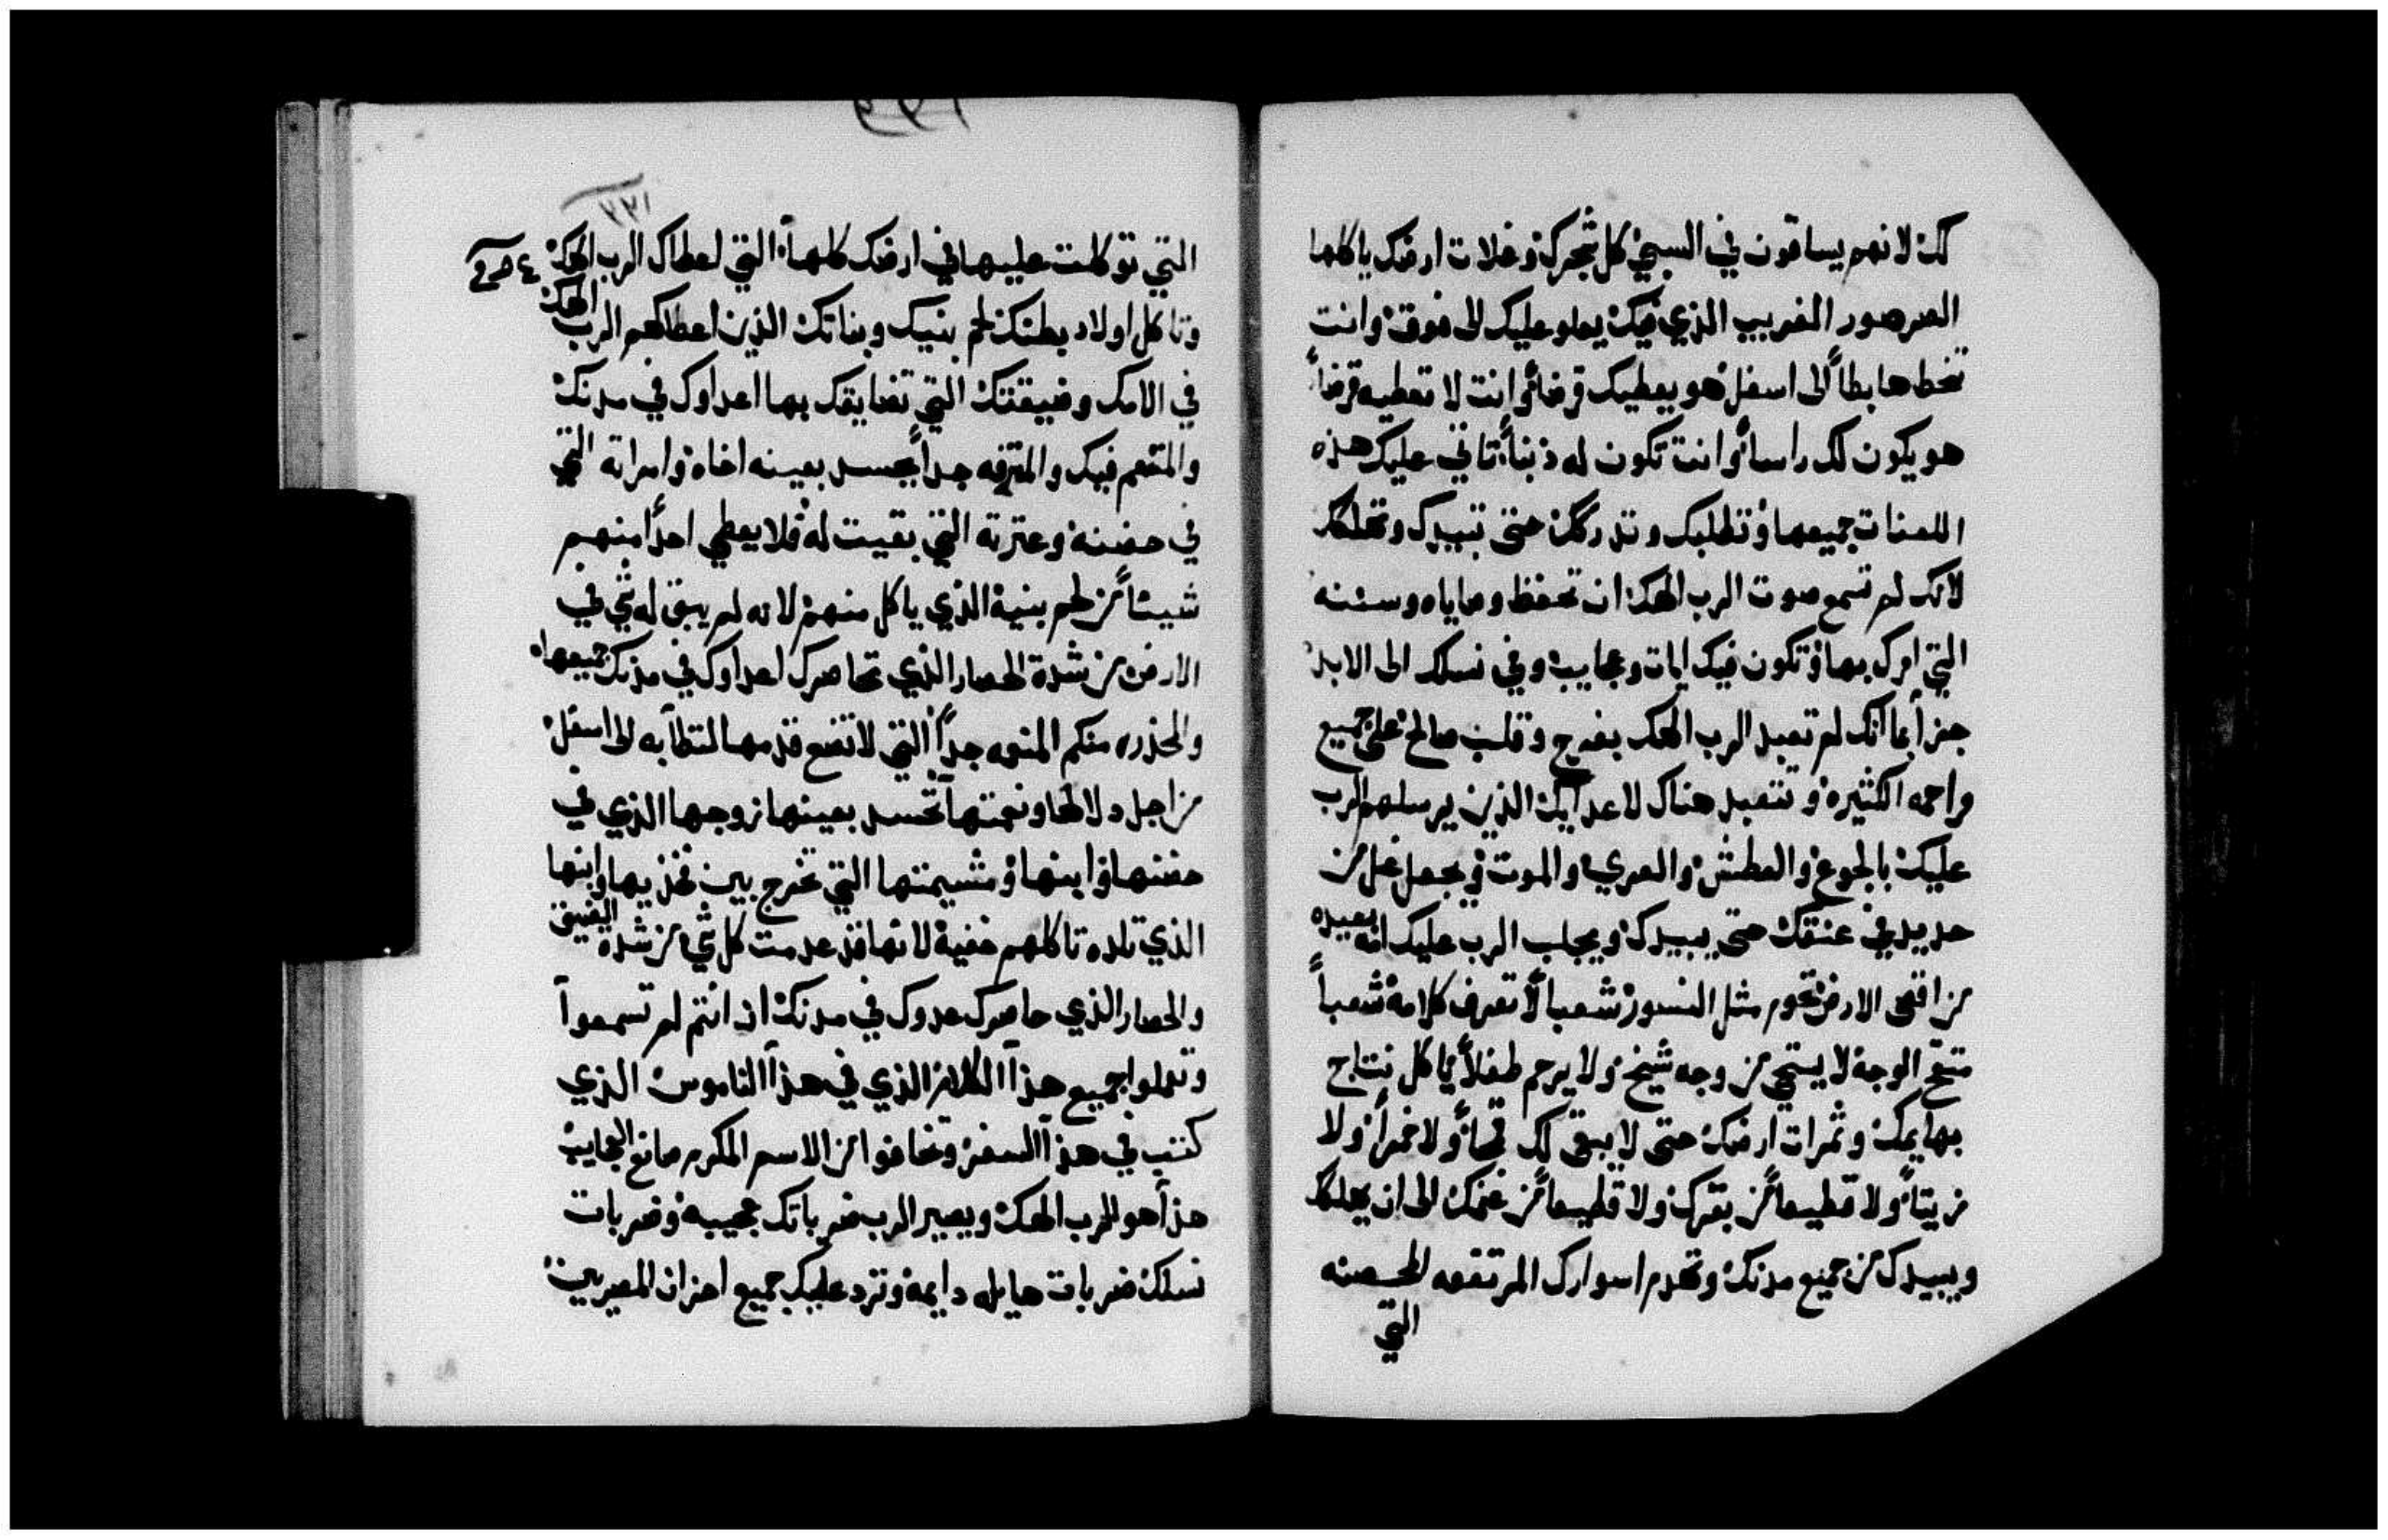 لك لانهم يساقون في السبي كل شجرك وغلات ارضك ياكلها
الصرصور الغريب الذي فيك يعلو عليك الى فوق وانت
تنحط هابطاً الى اسفل هو يعطيك قرضاً وانت لا تعطيه قرضاً
هو يكون لك راساً وانت تكون له ذنباً تاتي عليك هذه
اللعنات جميعها وتطلبك وتدركك حتى تبيدك وتهلكك
لانك لم تسمع صوت الرب الهك ان تحفظ وصاياه وسننه
التي امرك بها وتكون فيك ايات وعجايب وفي نسلك الى الابد
جزا بما انك لم تعبد الرب الهك بفرح وقلب صالح على جميع
الكثيره وتتعبد هناك لاعدايك الذين يرسلهم الرب
عليك بالجوع والعطش والعري والموت ويجعل غل من
حديد في عنقك حتى يبيدك ويجلب الرب عليك امه بعيده
من اقصى الارض مثل النسور شعباً لا تعرف كلامه شعباً
متقح الوجه لا يستحي من وجه شيخ ولا يرحم طفلاً ياكل نتاج
بهايمك وثمرات ارضك حتى لا يبقى لك قمحاً ولا خمراً ولا
زيتاً ولا قطيعاً من بقرك ولا قطيعاً من غنمك الى ان يهلكك
ويبيدك من جميع مدنك وتهدم اسوارك المرتفعه الحصينه
التي
٢٣١
التي توكلت عليها في ارضك كلها التي اعطاك الرب الهك
وتاكل اولاد بطنك لحم بنيك وبناتك الذين اعطاكهم الرب الهك
في الامك وضيقتك التي تضايقك بها اعداوك في مدنك
والمتنعم فيك والمترفه جداً يحسد بعينه اخاه وامراته التي
في حضنه وعترته التي بقيت له فلا يعطي احداً منهم
شيئاً من لحم بنيه الذي ياكل منهم لانه لم يبق له شي في
الارض من شدة الحصار الذي تحاصرك اعداوك في مدنك جميعها
والمخدره منكم المنعمه جداً التي لا تضع قدمها لتطا به الى اسفل
من اجل دلالها ونعمتها تحسد بعينها زوجها الذي في
حضنها وابنها ومشيمتها التي تخرج بين فخذيها وابنها
الذي تلده تاكلهم خفية لانها قد عدمت كل شي من شدة الضيق
والحصار الذي حاصرك عدوك في مدنك ان انتم لم تسمعوا
وتعملوا جميع هذا الكلام الذي في هذا الناموس الذي
كتب في هذا السفر وتخافوا من الاسم المكرم صانع العجايب
هذا هو الرب الهك ويصير الرب ضرباتك عجيبه وضربات
نسلك ضربات هايله دايمه وترد عليك جميع احزان المصريين